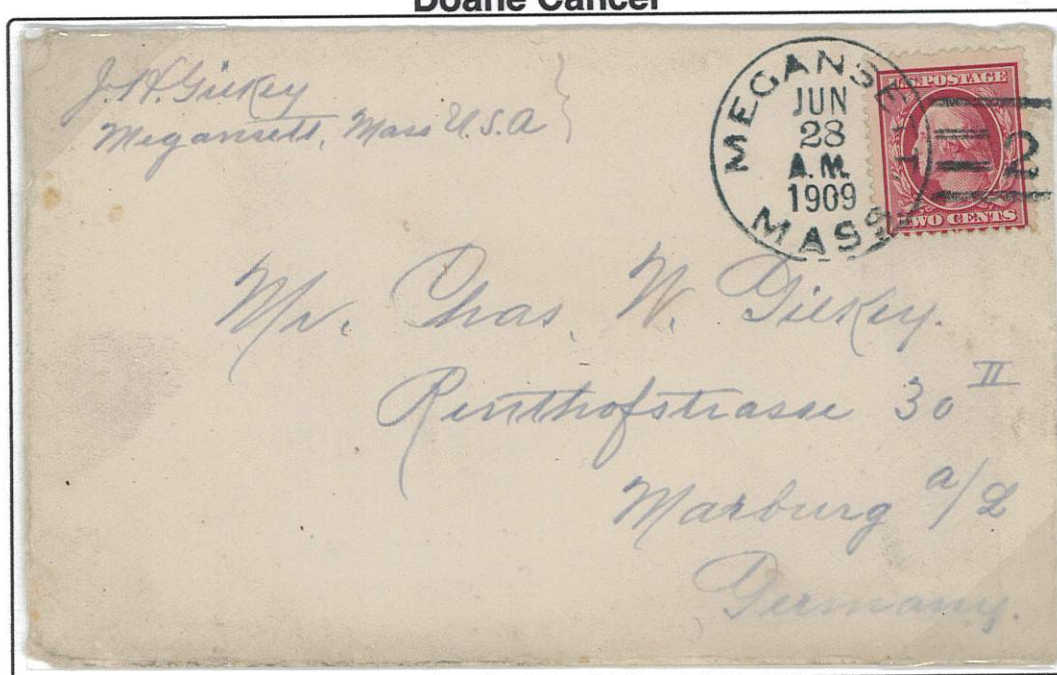 Doane Cancel
J. H. Gilkey
Megansett, Mass U.S.A
MEGANSETT
JUN
28
A.M.
1909
MASS.
U.S. POSTAGE
2
TWO CENTS
Mr. Chas. W. Gilkey.
Renthofstrasse 30 II
Marburg a/L
Germany.